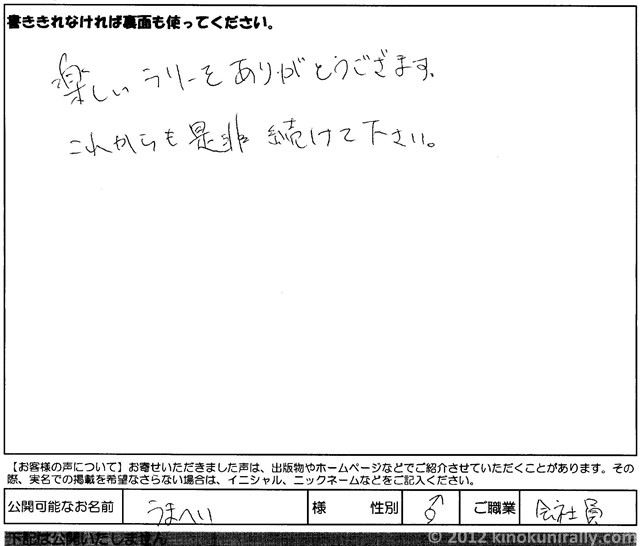 書ききれなければ裏面も使ってください。
楽しいラリーをありがとうござぎます。
これからも是非続けて下さい。
【お客様の声について】お寄せいただきました声は、出版物やホームページなどでご紹介させていただくことがあります。その
際、実名での掲載を希望なさらない場合は、イニシャル、ニックネームなどをご記入ください。
公開可能なお名前 うまへい 様 性別 ♂ ご職業 会社員
下記は公開いたしません
© 2012 kinokunirally.com